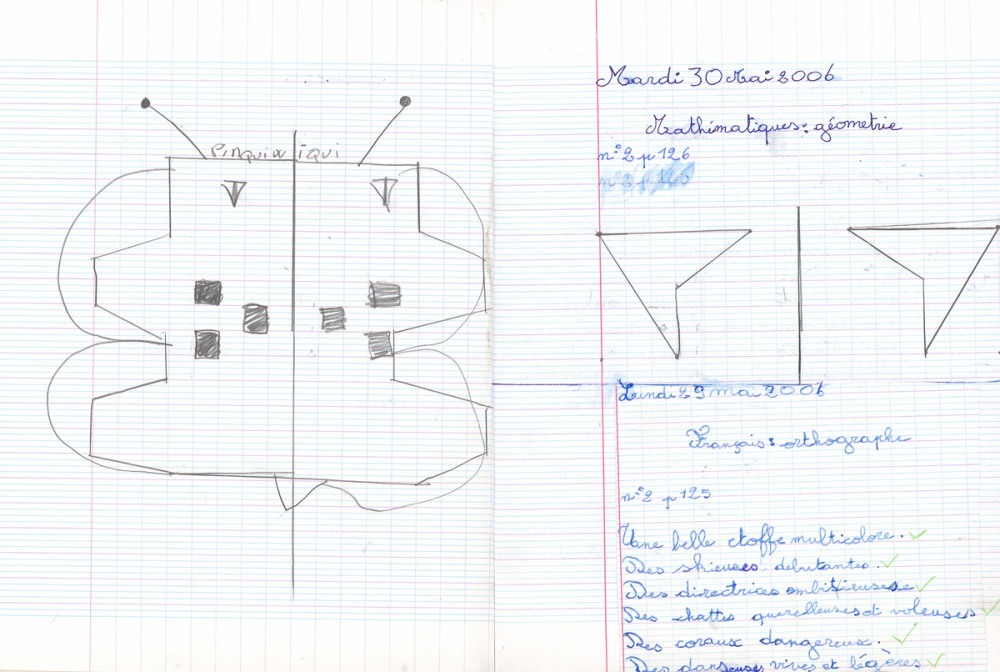 Mardi 30 Mai 2006
Mathimatiques: géometrie
n°2 p 126
n°3 p 126
Lundi 29 mai 2006
Français: orthographe
n°2 p 125
Une belle etoffe multicolore.
Des skieuses debutantes.
Des directrices ambitieuses
Des chattes querelleuses et voleuses
Des coraux dangereux.
Des danseuses vives et légères